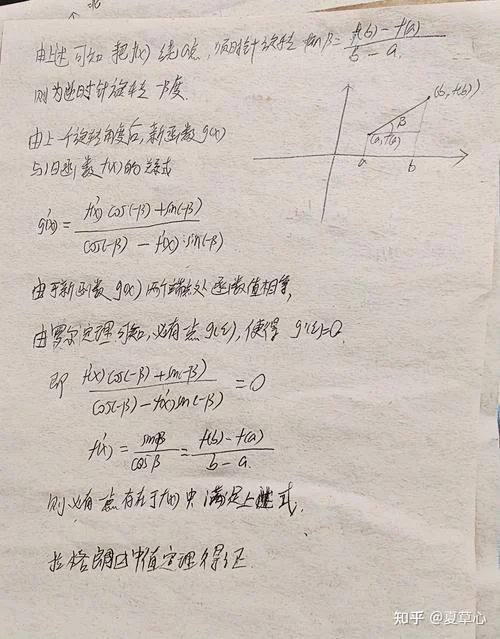 由上述可知 把f(x) 绕a点, 顺时针旋转 tanβ = \frac{f(b) - f(a)}{b - a}.
则为逆时针旋转 -β度.
(b, f(b))
β
(a, f(a))
a
b
由上一个旋转角度后, 新函数 g(x)
与旧函数 f(x) 的关系式
g'(x) = \frac{f'(x) cos(-β) + sin(-β)}{cos(-β) - f'(x) · sin(-β)}
由于新函数 g(x) 两个端点处 函数值相等,
由罗尔定理可知, 必有一点 g(ξ), 使得 g'(ξ)=0.
即 \frac{f'(x) cos(-β) + sin(-β)}{cos(-β) - f'(x) sin(-β)} = 0
f'(x) = \frac{sinβ}{cosβ} = \frac{f(b) - f(a)}{b - a}.
则必有一点存在于 f(x) 中 满足上述式.
拉格朗日中值定理得证
知乎 @夏草心